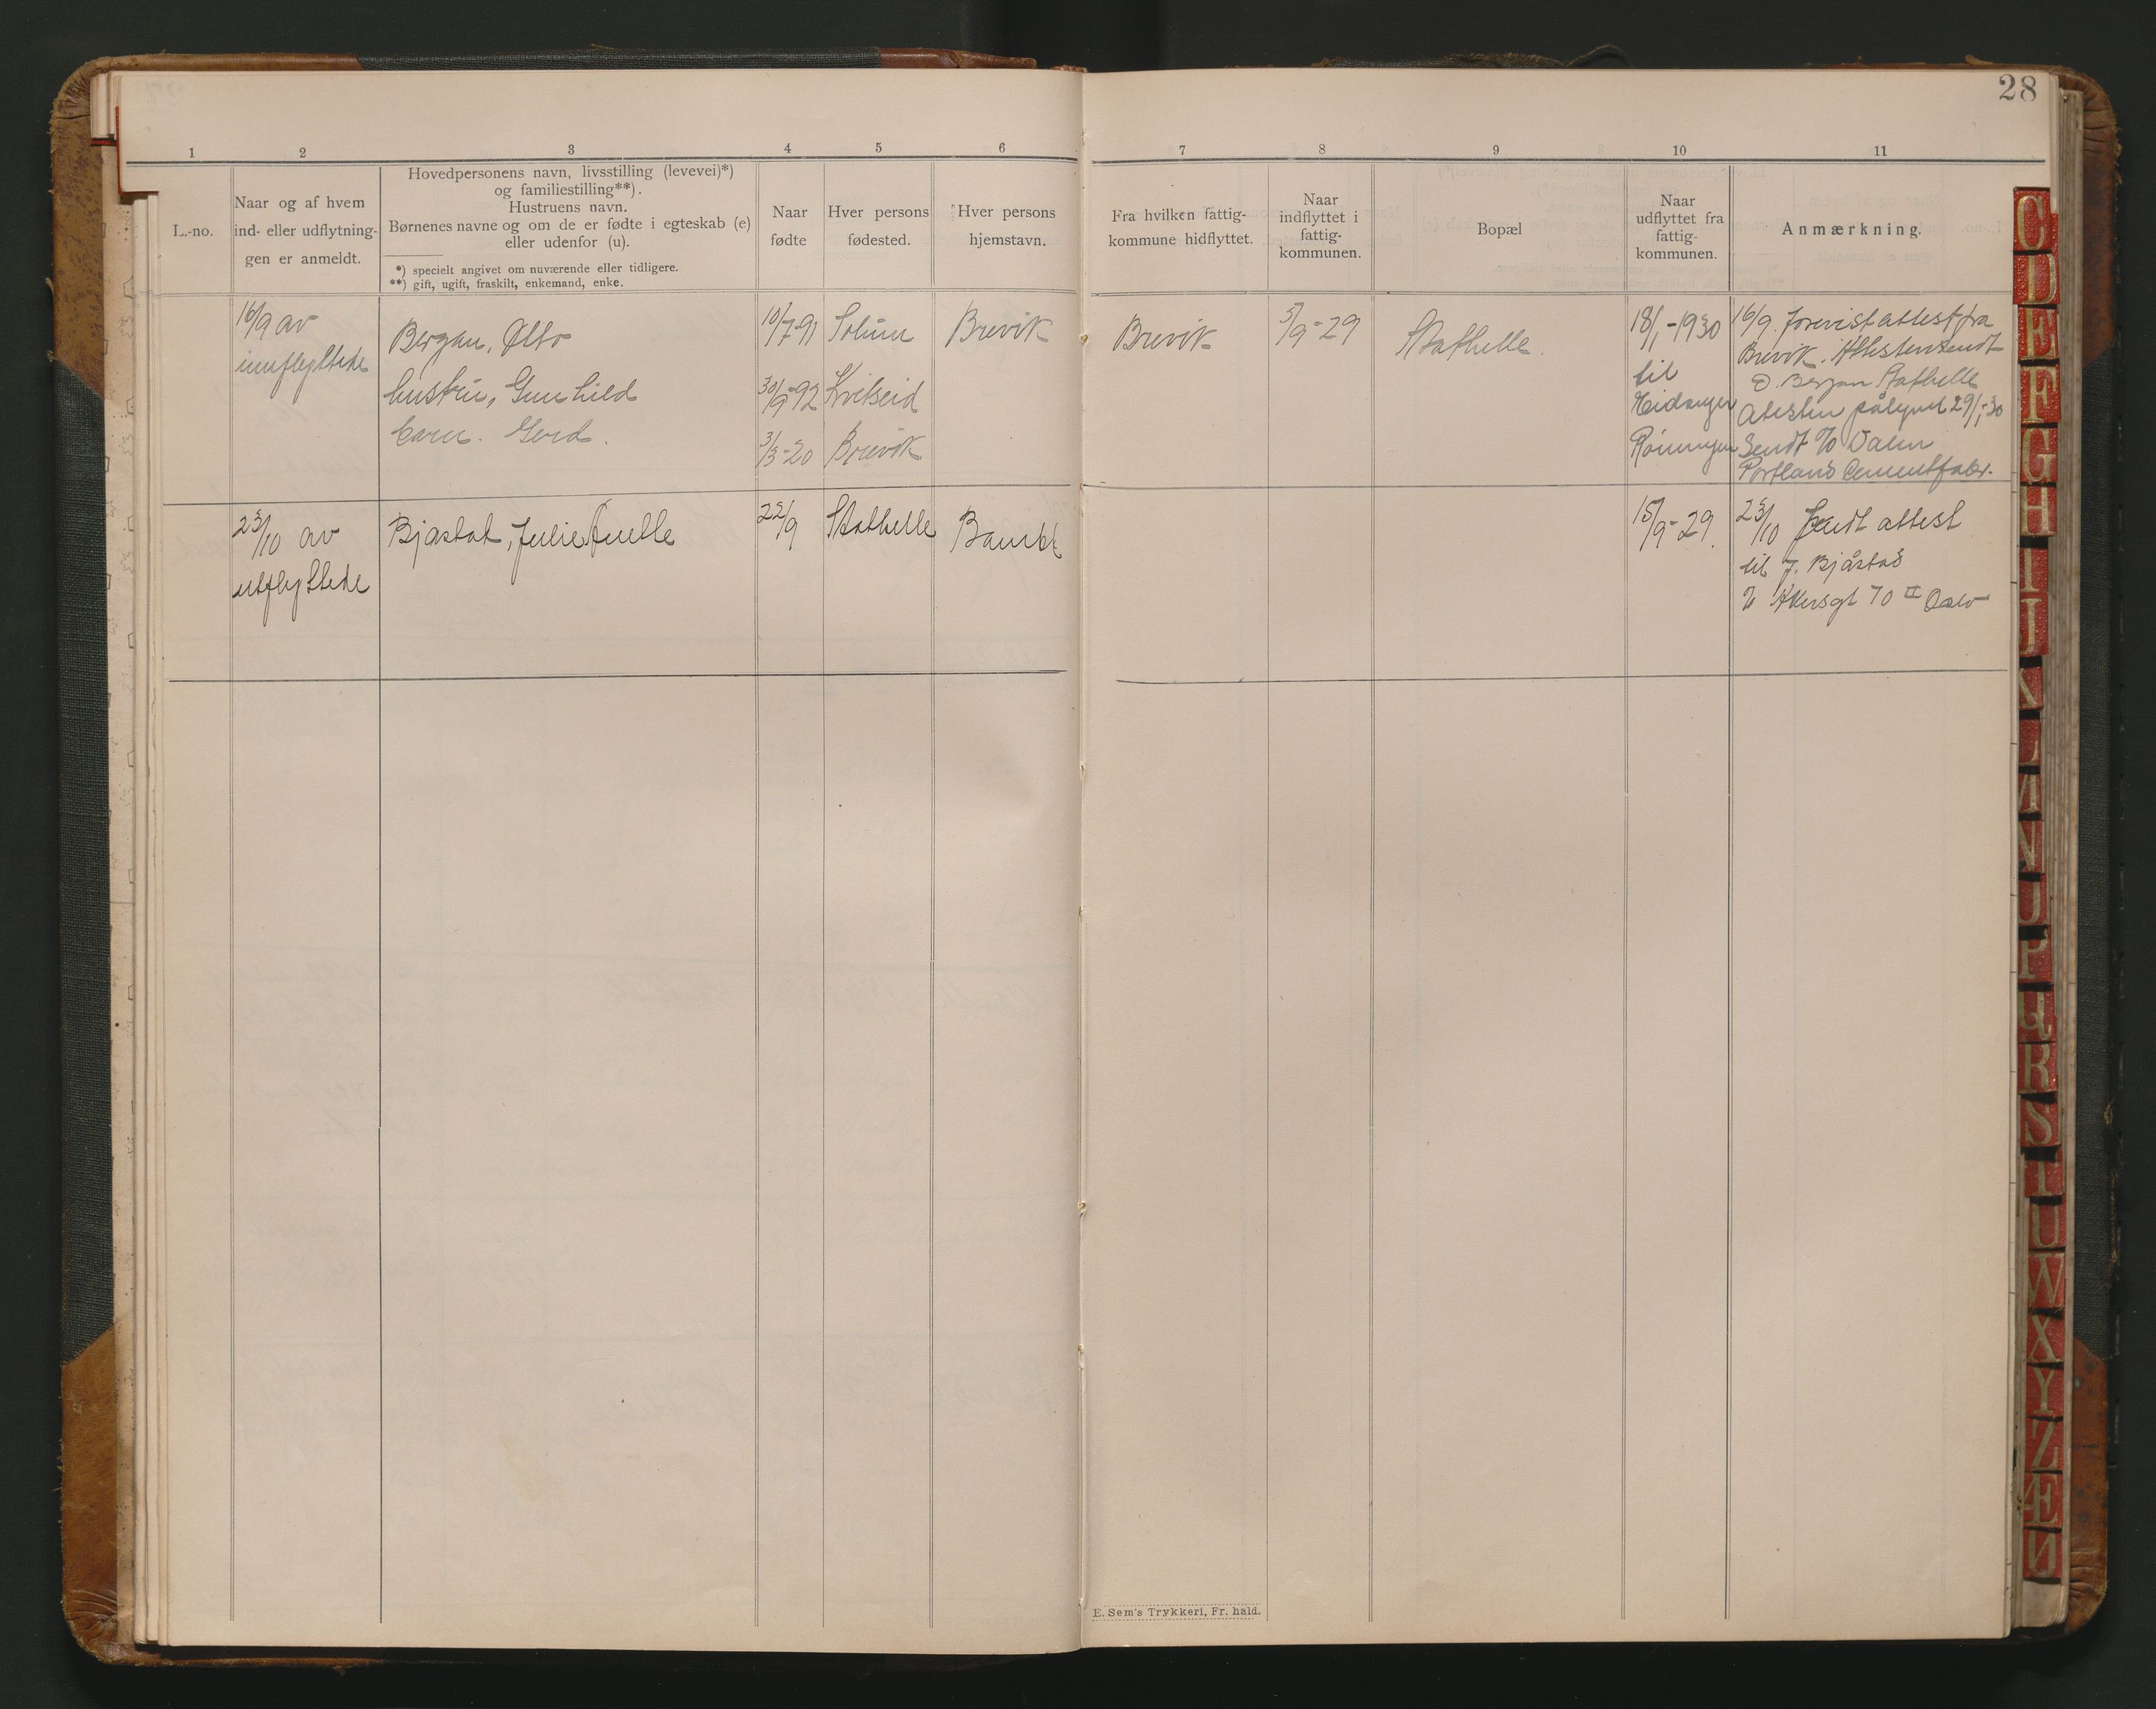 28
1 2 3 4 5 6 7 8 9 10 11
L.-no.
Naar og af hvem
ind- eller udflytning-
gen er anmeldt.
Hovedpersonens navn, livsstilling (levevei)*)
og familiestilling**).
Hustruens navn.
Børnenes navne og om de er fødte i egteskab (e)
eller udenfor (u).
*) specielt angivet om nuværende eller tidligere.
**) gift, ugift, fraskilt, enkemand, enke.
Naar
fødte
Hver persons
fødested.
Hver persons
hjemstavn.
Fra hvilken fattig-
kommune hidflyttet.
Naar
indflyttet i
fattig-
kommunen.
Bopæl
Naar
udflyttet fra
fattig-
kommunen.
Anmærkning.
16/9 av
innflyttede
Bergan, Otto
hustru, Gunhild
barn. Gerd.
10/7-91
30/9-92
3/3-20
Solum
Kvitseid
Brevik
Brevik
Brevik
5/9-29
Stathelle.
18/1-1930
til
Eidanger
16/9. forevist attest fra
Brevik. Attesten sendt
O. Bergan Stathelle
Atesten påtegnet 29/1-30
Sendt c/o Dalen
Portland Cementfabr.
23/10 av
utflyttede
Bjåstad, Julie
22/9
Stathelle
Bamble
15/9-29.
23/10 Sendt attest
til J. Bjåstad
c/o Akersgt 70 II Oslo
E. Sem's Trykkeri, Fr. hald.
C
D
E
F
G
H
I
J
K
L
M
N
O
P
Q
R
S
T
U
W
X
Y
Z
Æ